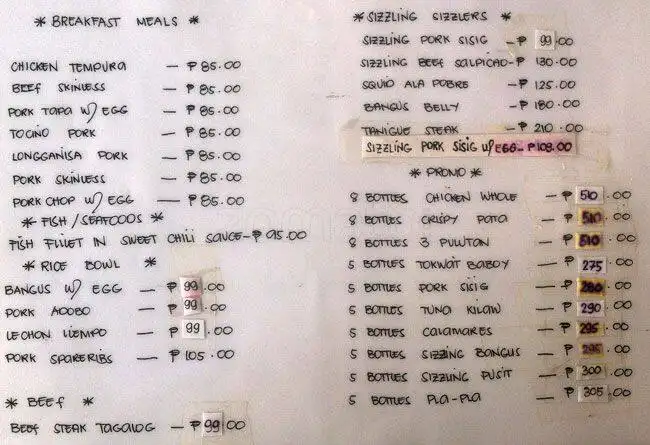 * BREAKFAST MEALS *
CHICKEN TEMPURA — ₱85.00
BEEF SKINLESS — ₱85.00
PORK TAPA W/ EGG — ₱85.00
TOCINO PORK — ₱85.00
LONGGANISA PORK — ₱85.00
PORK SKINLESS — ₱85.00
PORK CHOP W/ EGG — ₱85.00
* FISH/SEAFOODS *
FISH FILLET IN SWEET CHILI SAUCE-₱95.00
* RICE BOWL *
BANGUS W/ EGG — ₱99.00
PORK ADOBO — ₱99.00
LECHON LIEMPO — ₱99.00
PORK SPARERIBS — ₱105.00
* BEEF *
BEEF STEAK TAGALOG — ₱99.00
* SIZZLING SIZZLERS *
SIZZLING PORK SISIG -₱99.00
SIZZLING BEEF SALPICAO-₱130.00
SQUID ALA POBRE -₱125.00
BANGUS BELLY -₱180.00
TANIGUE STEAK -₱210.00
SIZZLING PORK SISIG W/EGG-₱108.00
* PROMO *
8 BOTTLES CHICKEN WHOLE — ₱510.00
8 BOTTLES CRISPY PATA — ₱510.00
8 BOTTLES 3 PULUTAN — ₱510.00
5 BOTTLES TOKWAT BABOY — ₱275.00
5 BOTTLES PORK SISIG — ₱280.00
5 BOTTLES TUNA KILAW — ₱290.00
5 BOTTLES CALAMARES — ₱295.00
5 BOTTLES SIZZLING BANGUS — ₱295.00
5 BOTTLES SIZZLING PUSIT — ₱300.00
5 BOTTLES PLA-PLA — ₱305.00